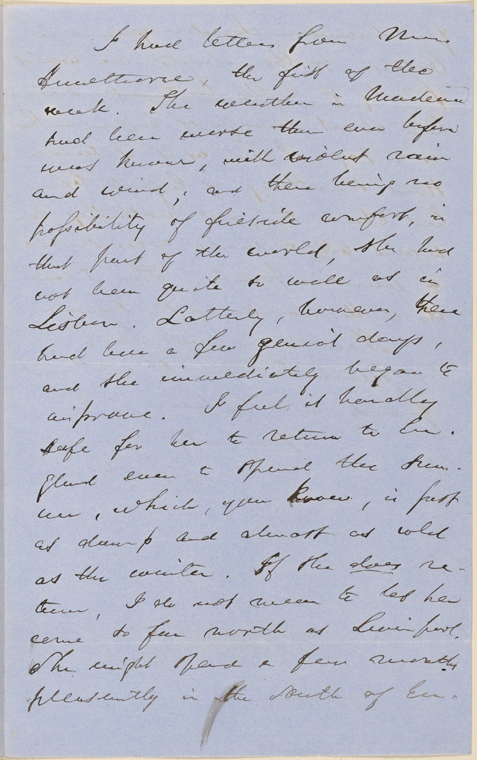 I had letters from Mrs.
Hawthorne, the first of the
week. The weather in Madeira
had been worse than ever before
was known, with violent rain
and wind; and there being no
possibility of fireside comfort, in
that part of the world, she had
not been quite so well as in
Lisbon. Latterly, however, there
had been a few genial days,
and she immediately began to
improve. I feel it hardly
safe for her to return to En-
gland even to spend the sum-
mer, which, you know, is just
as damp and almost as cold
as the winter. If she does re-
turn, I do not mean to let her
come so far north as Liverpool.
She might spend a few months
pleasantly in the South of En-